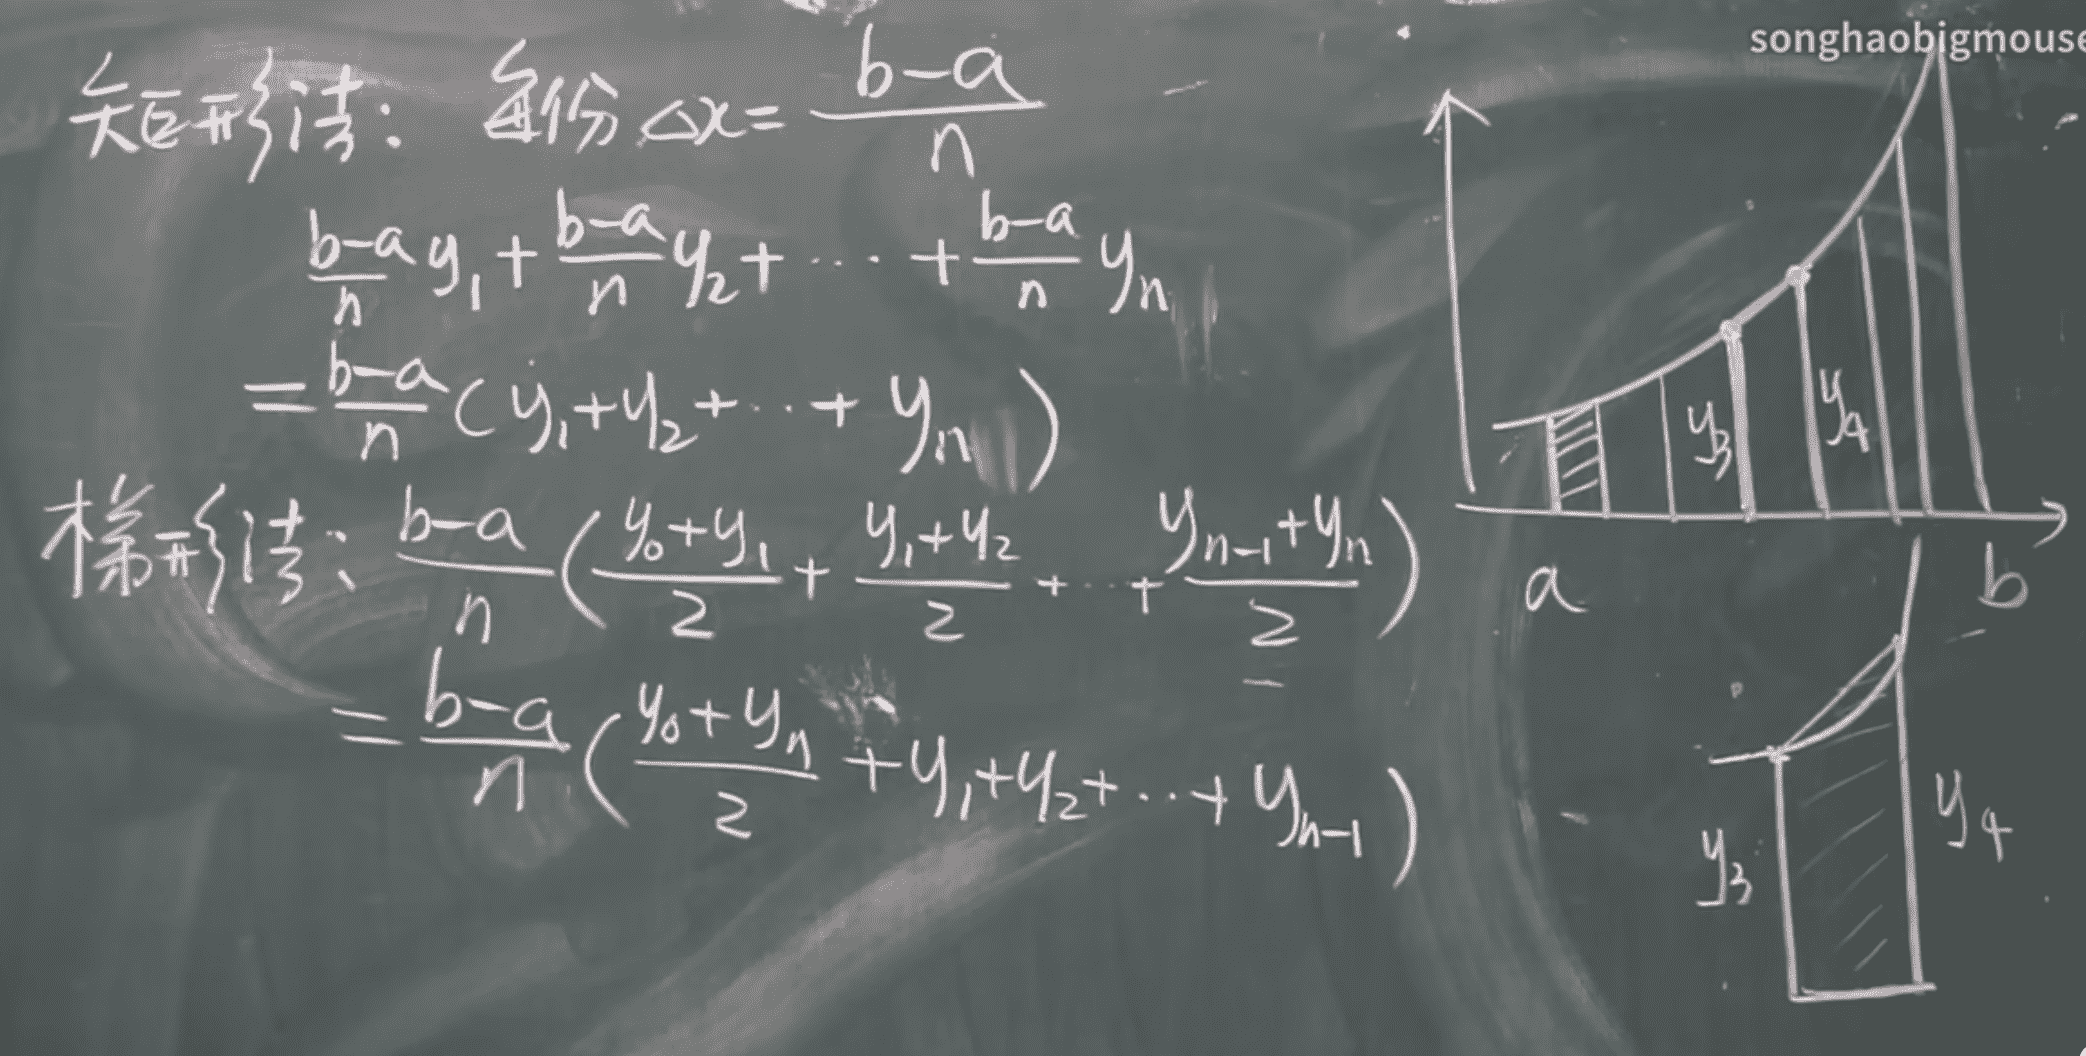 songhaobigmouse
矩形法: 每份 Δx = (b-a)/n
(b-a)/n y₁ + (b-a)/n y₂ + ···· + (b-a)/n yₙ
= (b-a)/n ( y₁ + y₂ + ··· + yₙ )
梯形法: (b-a)/n ( (y₀+y₁)/2 + (y₁+y₂)/2 + ·· + (yₙ₋₁+yₙ)/2 )
= (b-a)/n ( (y₀+yₙ)/2 + y₁ + y₂ + ··· + yₙ₋₁ )
y₃ y₄
a b
y₃ y₄